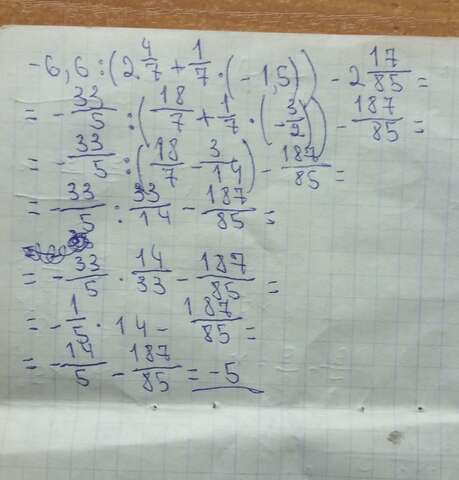 -6,6:(2 4/7 + 1/7 · (-1,5)) - 2 17/85 =
= - 33/5 : (18/7 + 1/7 · (-3/2)) - 187/85 =
= - 33/5 : (18/7 - 3/14) - 187/85 =
= - 33/5 : 33/14 - 187/85 =
= - 33/5 · 14/33 - 187/85 =
= - 1/5 · 14 - 187/85 =
= - 14/5 - 187/85 = -5